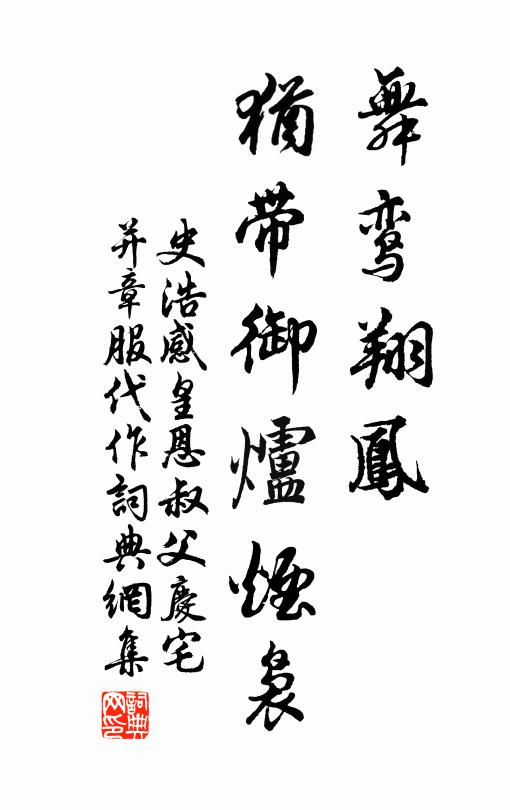 舞鸾翔鳳
猶帯御爐煙袅
史浩感皇恩叔父慶宅
并章服代作詞典網集
詞典
网印